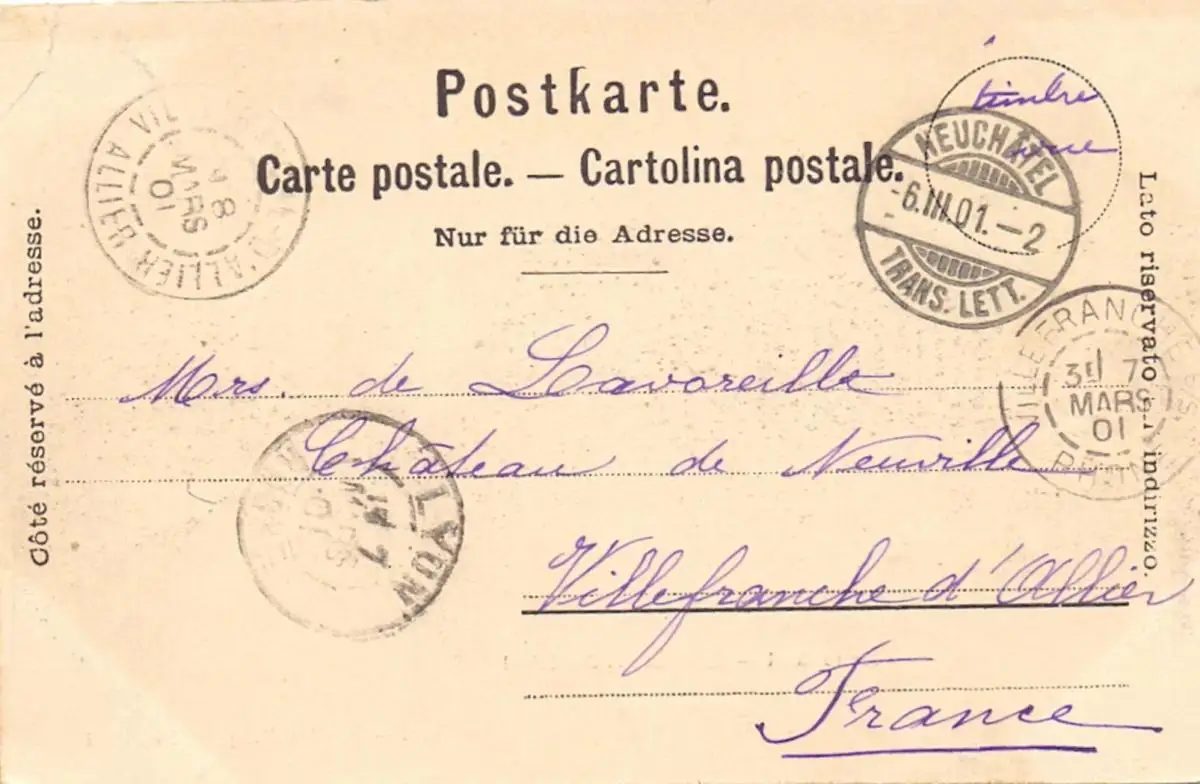 Postkarte.
Carte postale. — Cartolina postale.
Nur für die Adresse.
Côté réservé à l'adresse.
Lato riservato all'indirizzo.
timbre
vue
NEUCHÂTEL
-6.III.01.-2
TRANS. LETT.
ALLIER
8
MARS
01
VILLEFRANCHE
3E 7
MARS
01
RHONE
LYON
Mrs. de Lavoreille
Château de Neuville
Villefranche d'Allier
France